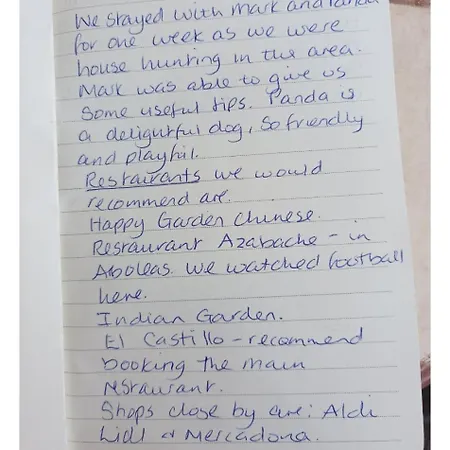 We stayed with Mark and Panda
for one week as we were
house hunting in the area.
Mark was able to give us
some useful tips. Panda is
a delightful dog, so friendly
and playful.
Restaurants we would
recommend are.
Happy Garden Chinese.
Restaurant Azabache - in
Arboleas. We watched football
here.
Indian Garden.
El Castillo - recommend
booking the main
restaurant.
Shops close by are: Aldi
Lidl & Mercadona.